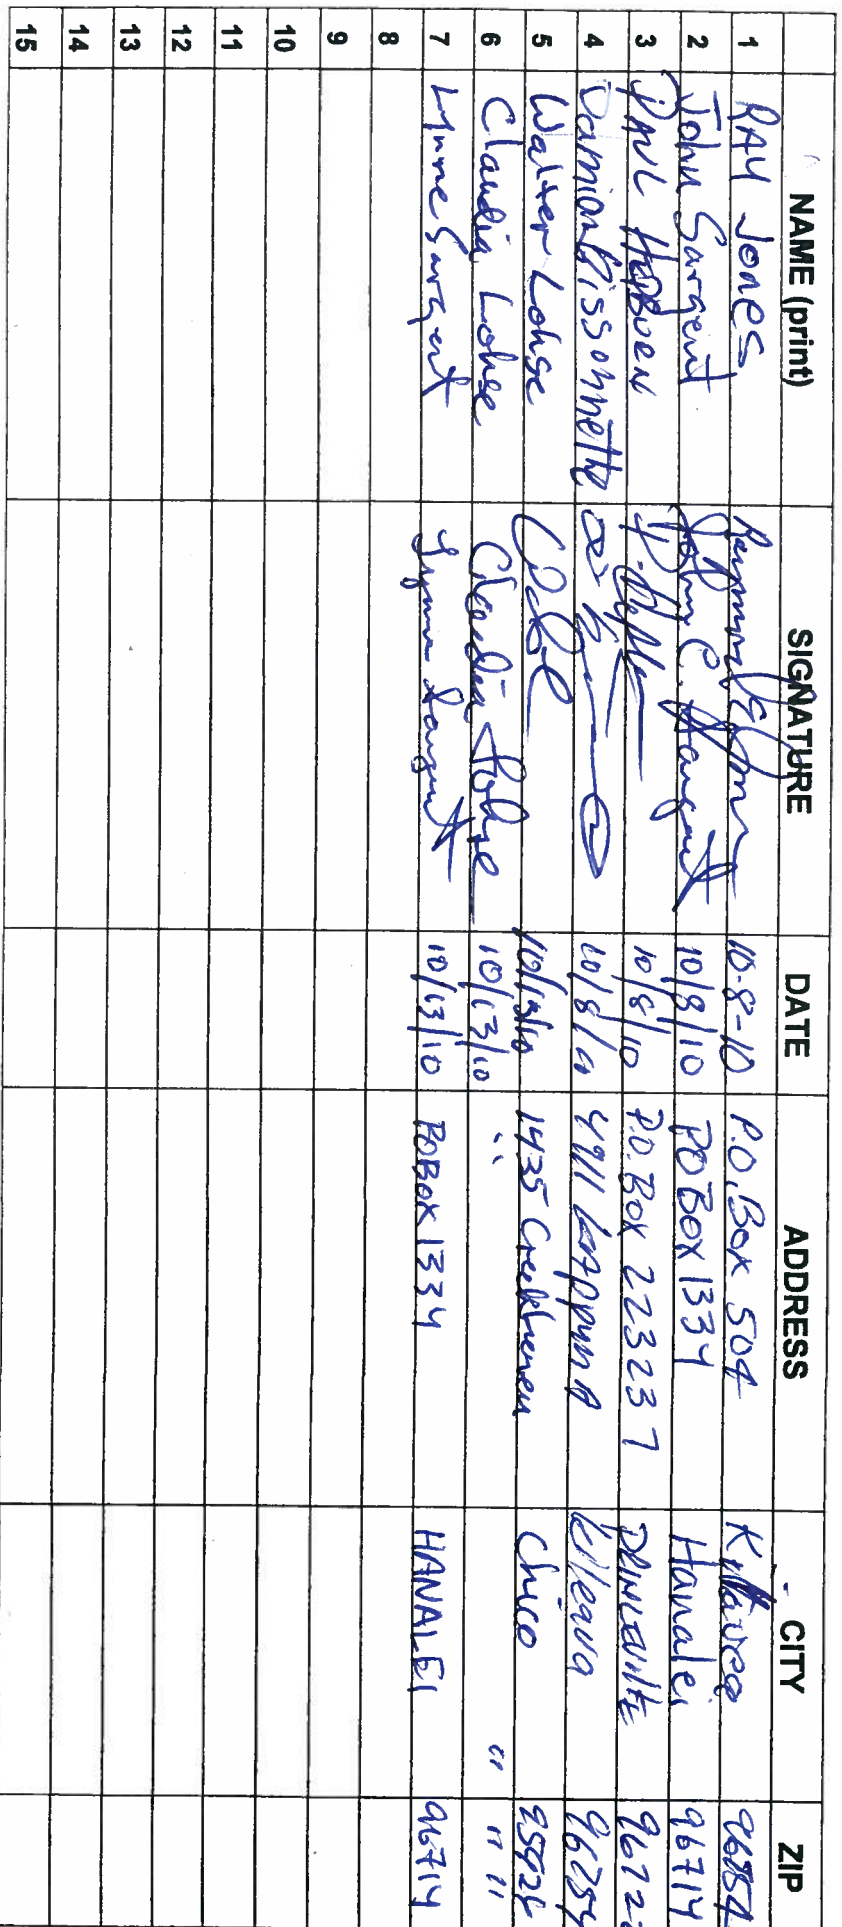 NAME (print) SIGNATURE DATE ADDRESS CITY ZIP
1 RAY Jones 10-8-10 P.O. Box 504 Kilauea 96754
2 John Sargent John C. Sargent 10/8/10 PO Box 1334 Hanalei 96714
3 PAUL 10/8/10 P.O. Box 223237 9672
4 Damion Bissonnette 10/8/10 Kileaua 96754
5 Walter Lohse 10/13/10 1435 Chico 95926
6 Claudia Lohse Claudia Lohse 10/13/10 " " " "
7 Lynne Sargent Lynne Sargent 10/13/10 POBOX 1334 HANALEI 96714
8
9
10
11
12
13
14
15